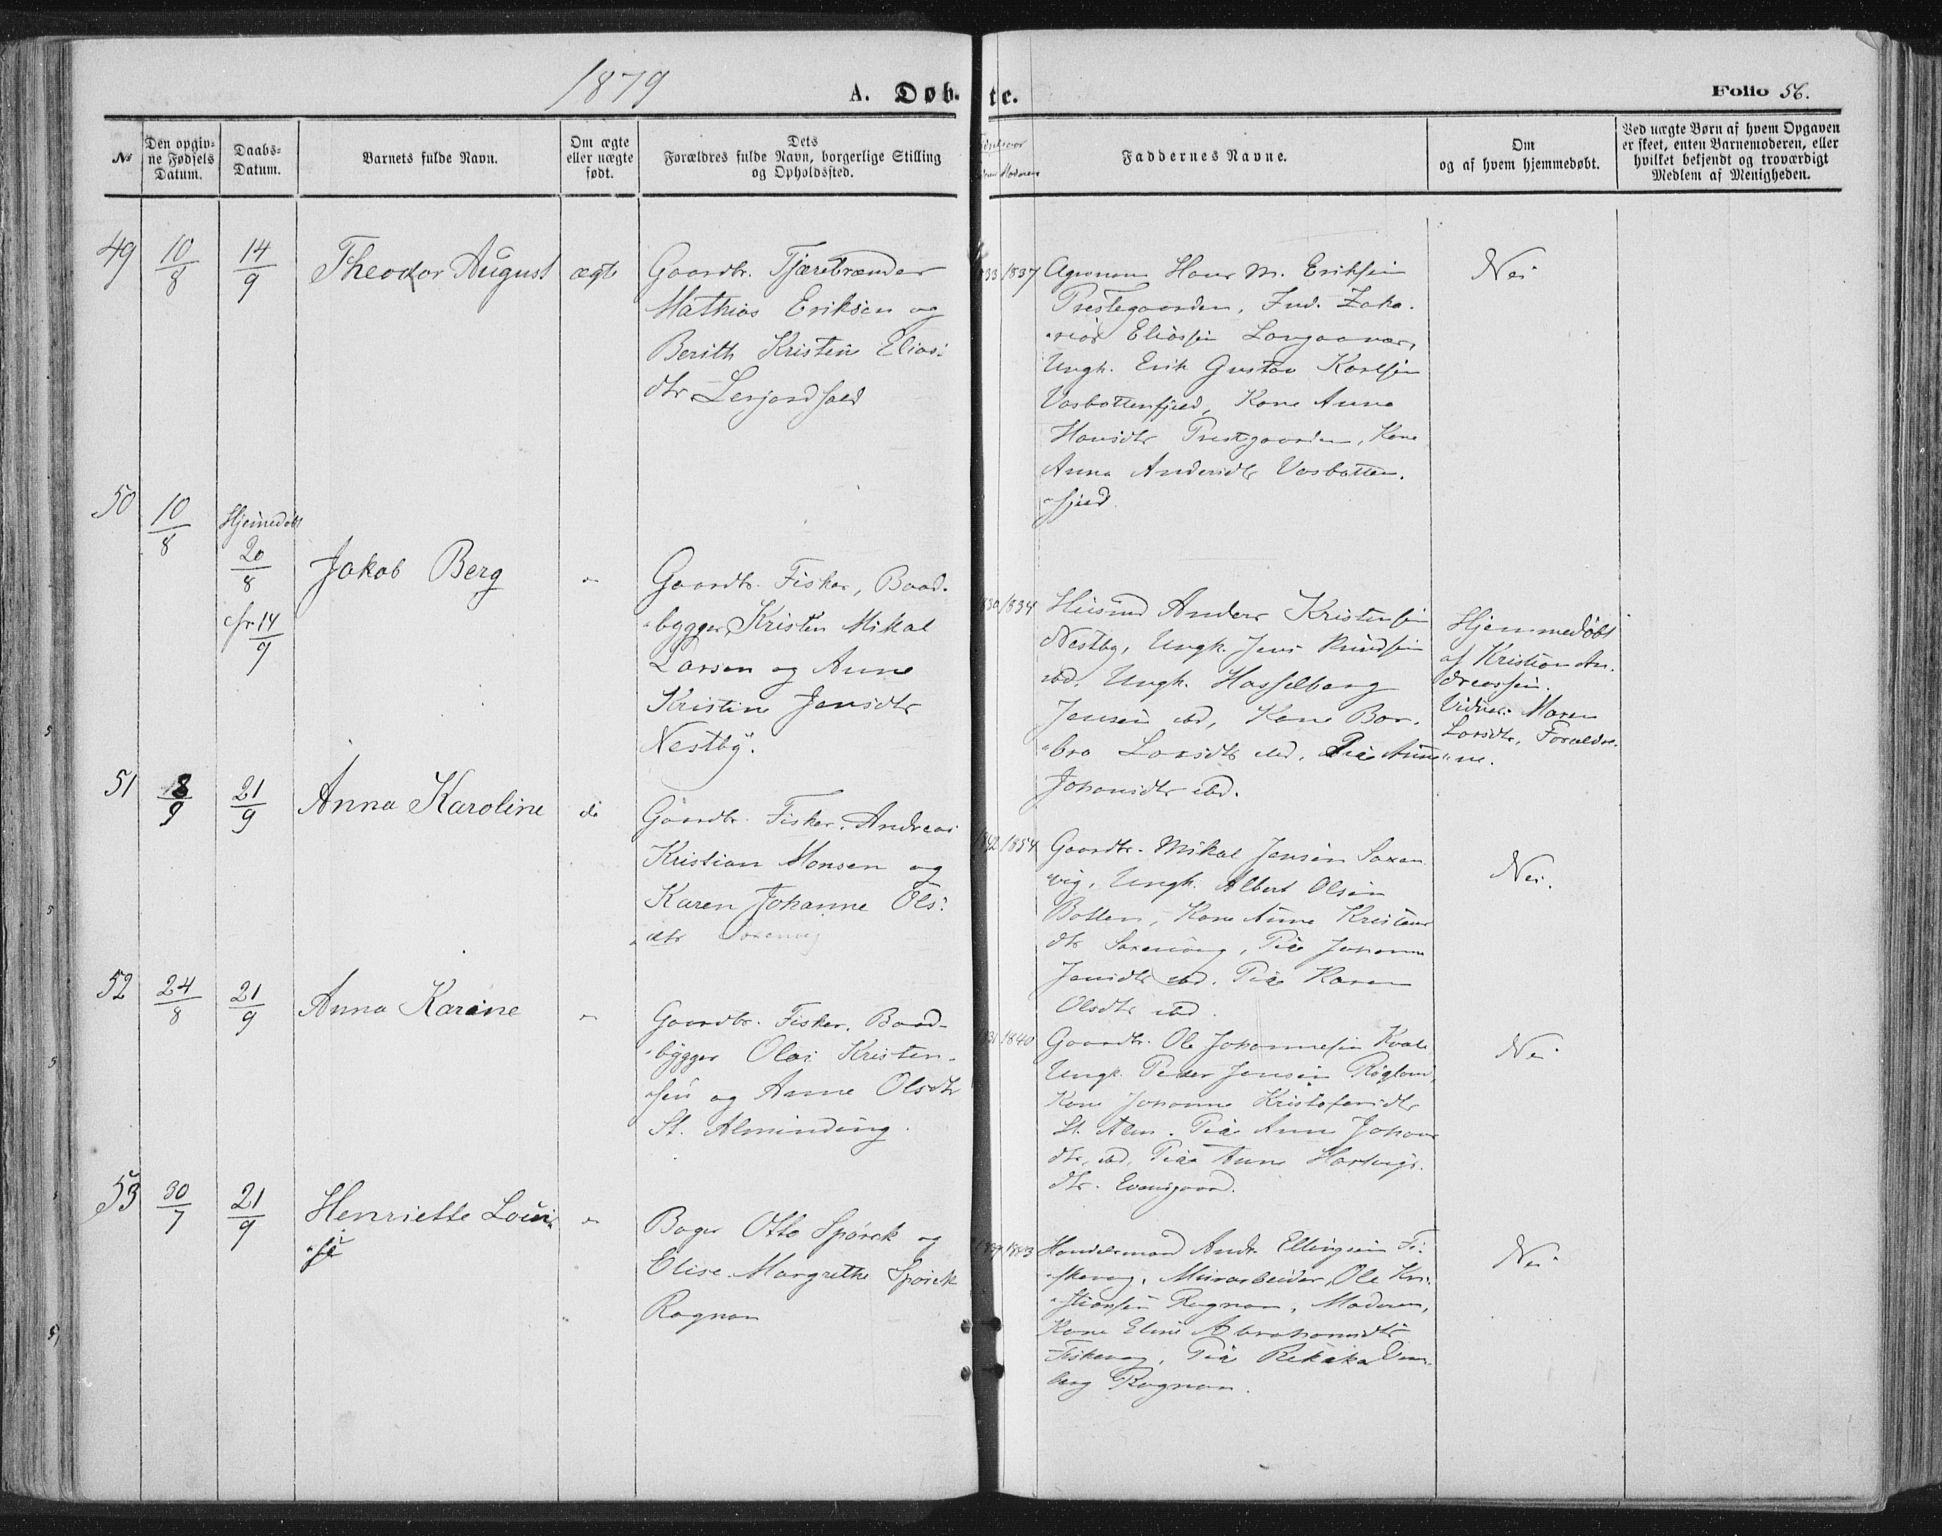 1879
A. Døb-
te.
Folio 56.
No
Den opgiv-
ne Fødsels
Datum.
Daabs-
Datum.
Barnets fulde Navn.
Om ægte
eller uægte
født.
Dets
Forældres fulde Navn, borgerlige Stilling
og Opholdssted.
Faddernes Navne.
Om
og af hvem hjemmedøbt.
Ved uægte Børn af hvem Opgaven
er skeet, enten Barnemoderen, eller
hvilket bekjendt og troværdigt
Medlem af Menigheden.
49
10/8
14/9
Theodor August
ægte
Gaardbr. Tjærebrænder
Mathias Eriksen og
Berith Kristine Elias-
dtr
833/1837
Agronom Hans M. Eriksen
Prestegaarden, Ind. Zaka-
rias Eliassen
Ungk. Erik Gustav Karlsen
Vasbottenfjeld, Kone Anna
Hansdtr Prestegaarden, Kone
Anna Andersdtr Vasbotten-
fjeld.
Nei
50
10/8
Hjemmedøbt
20/8
fr. 14/9
Jakob Berg
"
Gaardbr. Fisker, Baad-
bygger Kristen Mikal
Larsen og Anne
Kristine Jensdtr
Nestby.
830/1834
Husmd Anders Kristensen
Nestby, Ungk. Jens Knudsen
ibd, Ungk. Hasselberg
Jensen ibd, Kone Bar-
bra Larsdtr ibd, Pia Anne
Johansdtr ibd.
Hjemmedøbt
af Kristian An-
dreassen.
Vidner: Maren
Larsdtr, Forældre-
ne.
51
18/9
21/9
Anna Karoline
do
Gaardbr. Fisker, Andreas
Kristian Monsen og
Karen Johanne Ols-
dtr Saxenvig
1842/1854
Gaardbr. Mikal Jensen Saxen-
vig, Ungk. Albert Olsen
Botten, Kone Anne Kristens-
dtr Saxenvig, Pia Johanna
Jensdtr ibd. Pia Karen
Olsdtr ibd.
Nei.
52
24/8
21/9
Anna Karine
"
Gaardbr. Fisker, Baad-
bygger Olai Kristen-
sen og Anne Olsdtr
St. Alminding.
831/1840
Gaardbr. Ole Johannesen Kvale
Ungk. Peder Jensen Røglan,
Kone Johanna Kristofersdtr
St. Alm. Pia Anne Johans-
dtr, ibd, Pia Anne Hartvigs-
dtr. Evensgaard.
Nei
53
30/7
21/9
Henriette Loui-
se
"
Bager Otto Spørck og
Elise Margrethe Spørck
Rognan
1843
Handelsmand Andr. Ellingsen Fi-
skevaag, Murarbeider, Ole Kri-
stiansen Rognan, Moderen,
Kone Elen Abrahamsdtr
Fiskevaag, Pia Rebekka
berg Rognan.
Nei